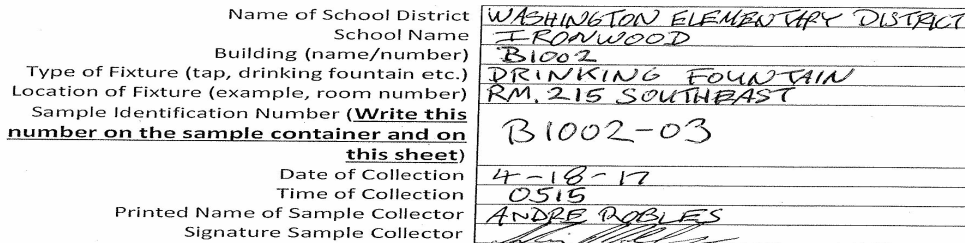 Name of School District WASHINGTON ELEMENTARY DISTRICT
School Name IRONWOOD
Building (name/number) B1002
Type of Fixture (tap, drinking fountain etc.) DRINKING FOUNTAIN
Location of Fixture (example, room number) RM. 215 SOUTHEAST
Sample Identification Number (Write this
number on the sample container and on
this sheet) B1002-03
Date of Collection 4-18-17
Time of Collection 0515
Printed Name of Sample Collector ANDRE ROBLES
Signature Sample Collector